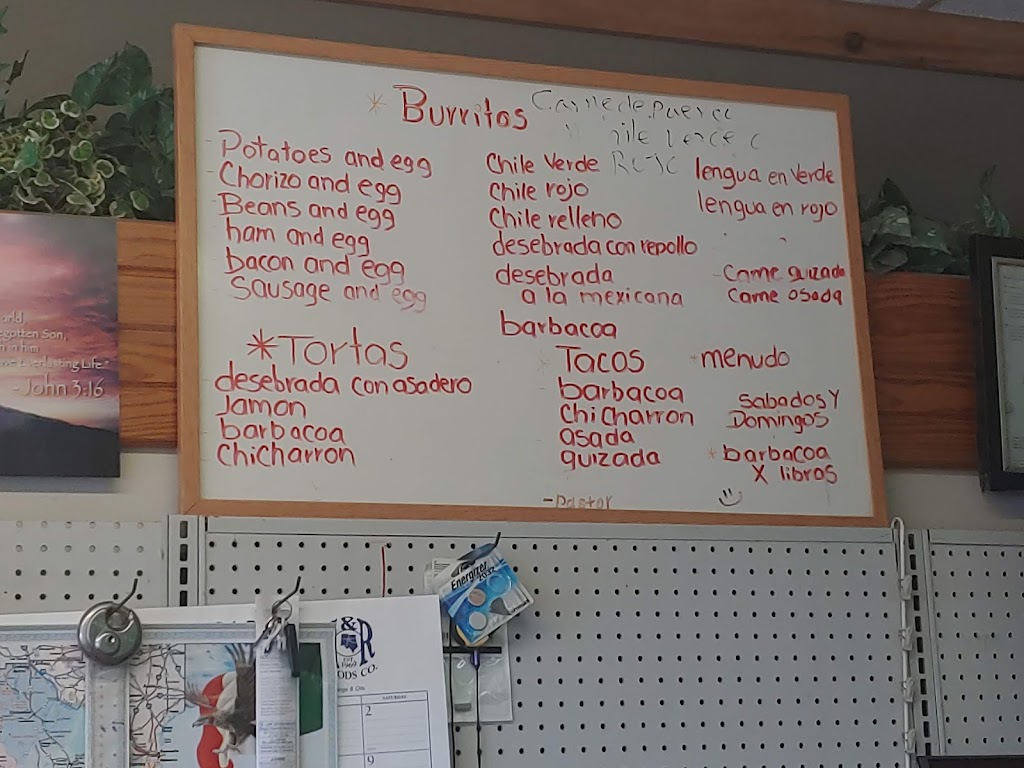 * Burritos
Carne de Puerco
Potatoes and egg
Chorizo and egg
Beans and egg
ham and egg
bacon and egg
Sausage and egg
Chile Verde
Chile rojo
Chile relleno
desebrada con repollo
desebrada
a la mexicana
barbacoa
lengua en Verde
lengua en rojo
- Carne guizada
Carne asada
*Tortas
desebrada con asadero
Jamon
barbacoa
Chicharron
* Tacos
barbacoa
Chicharron
asada
guizada
- Pastor
* menudo
Sabados Y
Domingos
* barbacoa
X libras
gotten Son,
in him
Everlasting Life."
- John 3:16
Energizer
2032
& R
ODS CO.
SATURDAY
2
9